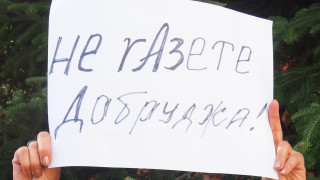 не гАЗете
Добруджа!